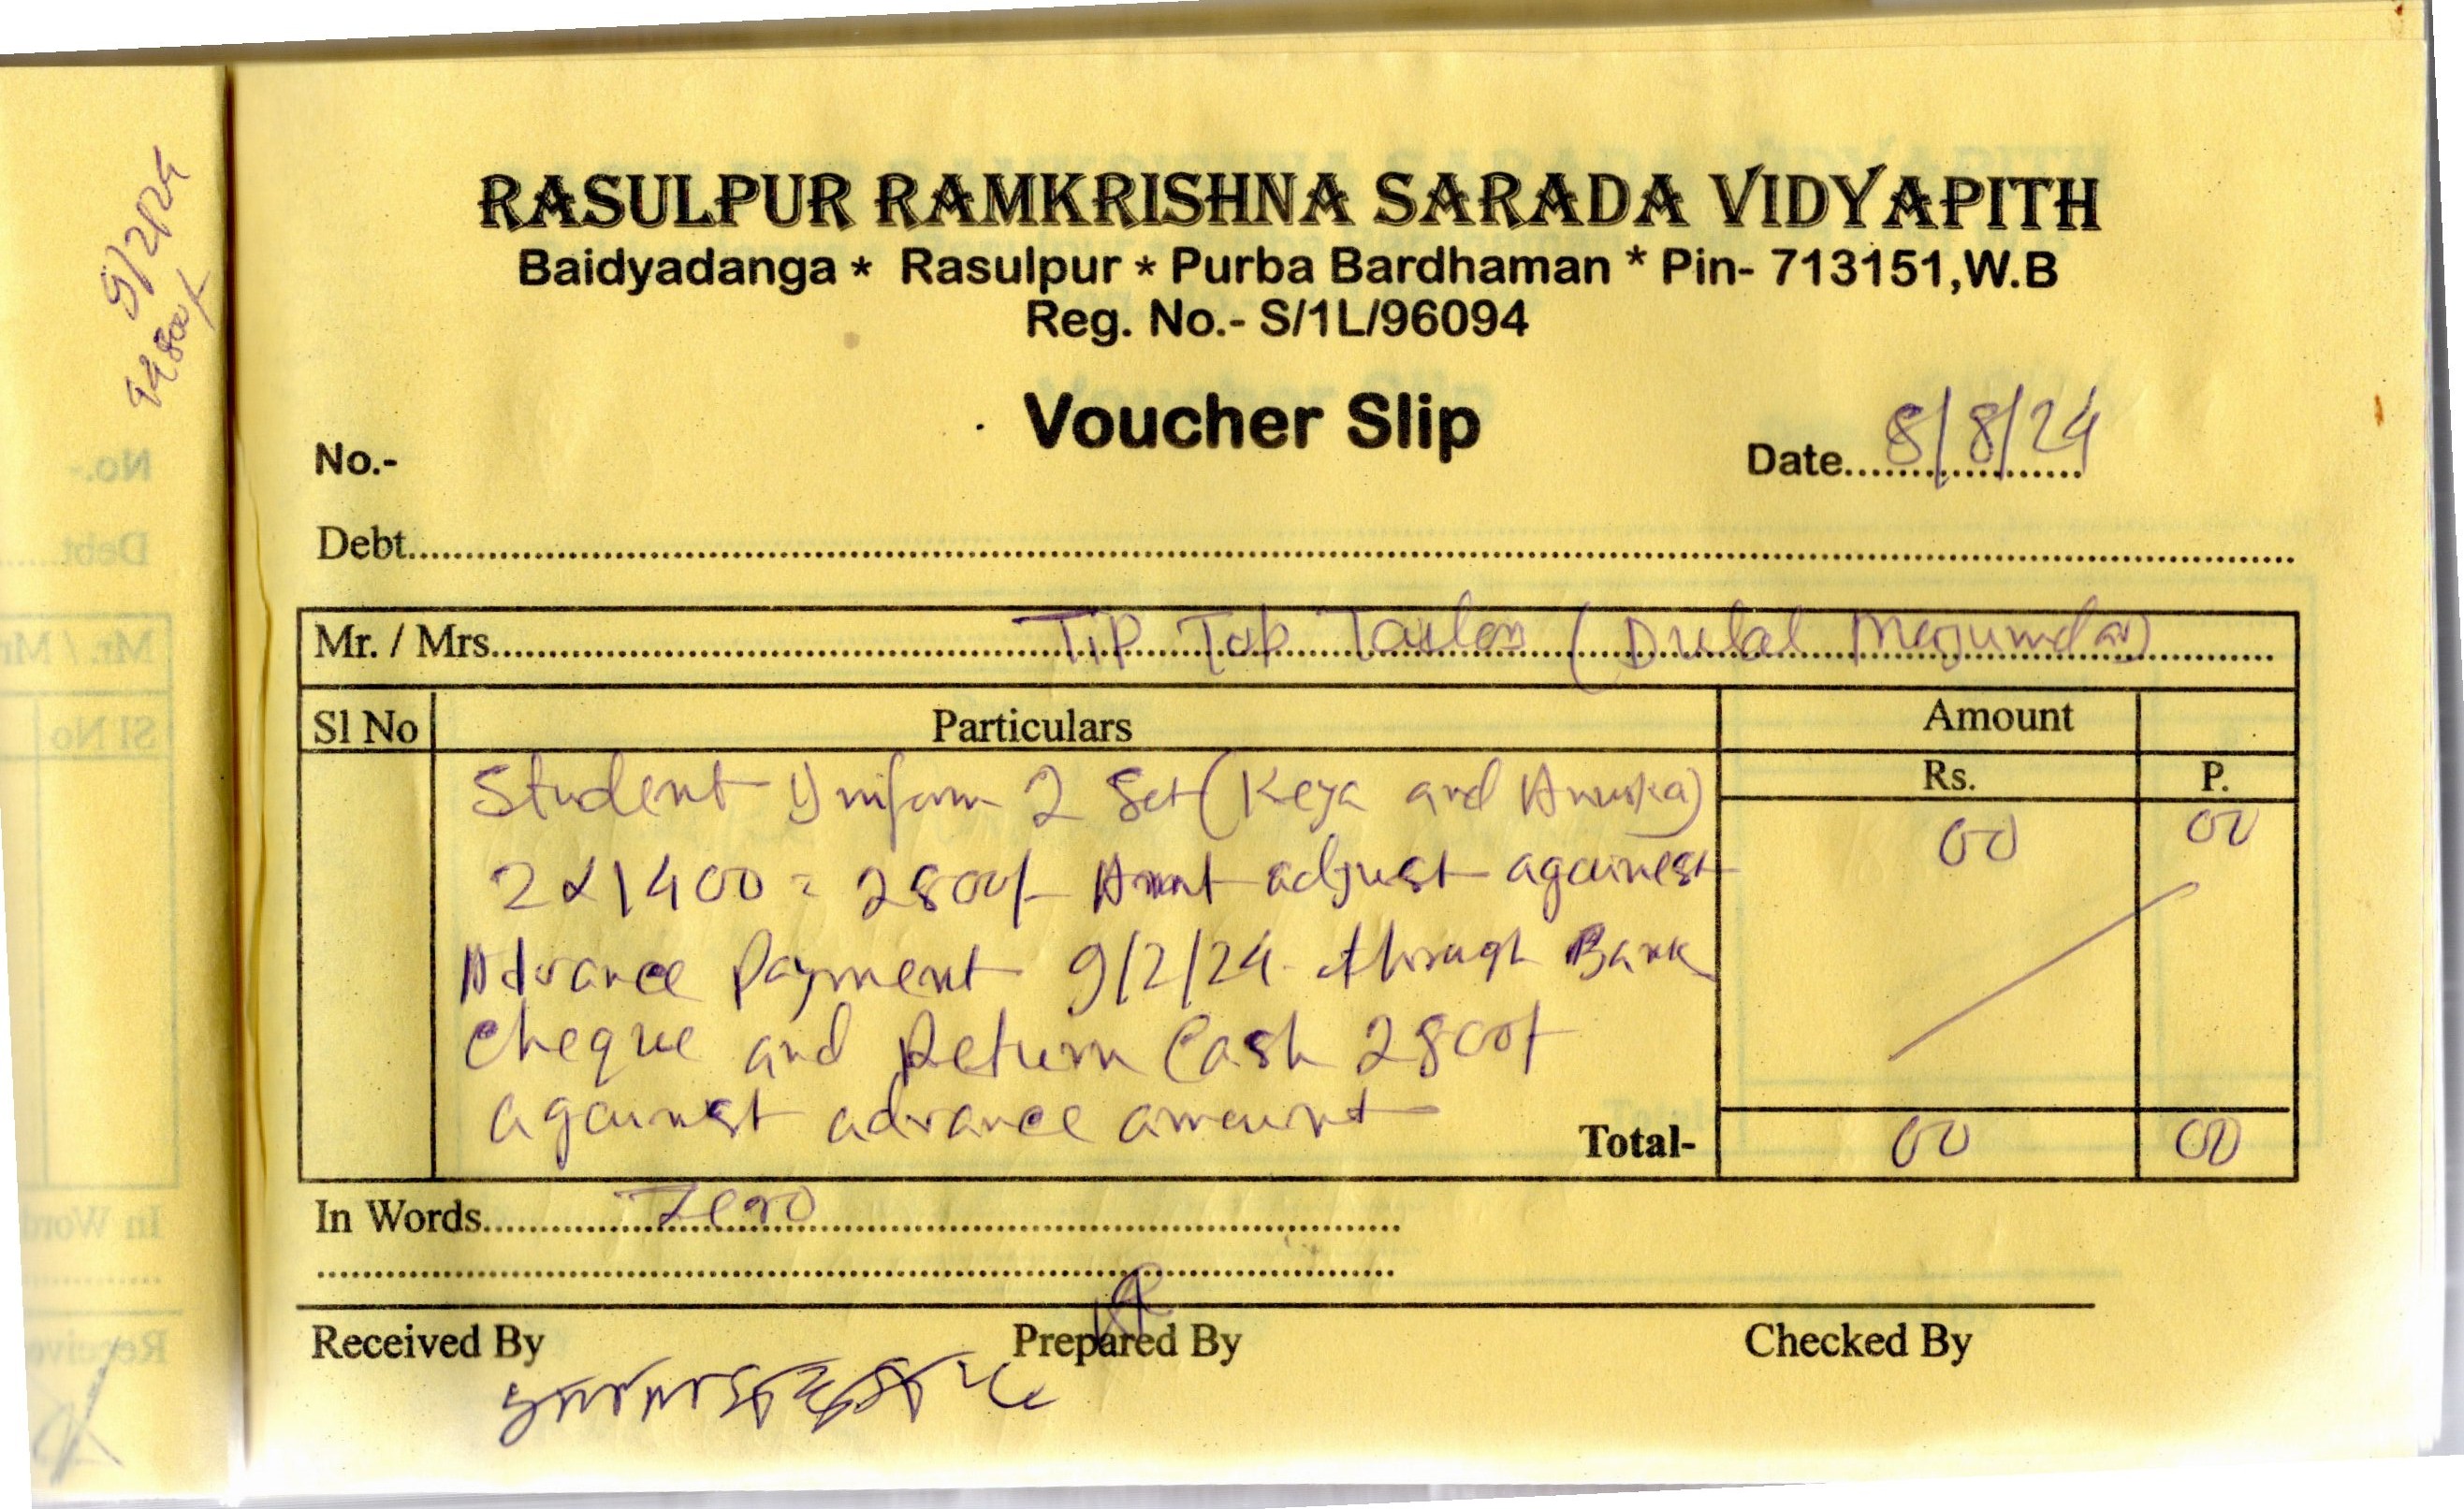 RASULPUR RAMKRISHNA SARADA VIDYAPITH
Baidyadanga * Rasulpur * Purba Bardhaman * Pin- 713151,W.B
Reg. No.- S/1L/96094
Voucher Slip
No.-
Date 8/8/24
Debt
Mr. / Mrs. Tip Top Tailors (Dulal Majumdar)
Sl No Particulars Amount
Rs. P.
Student Uniform 2 Set (Keya and Anuska) 00 00
2x1400 = 2800/- Amnt adjust against
Advance Payment 9/2/24 through Bank
Cheque and Return Cash 2800/-
against advance amount
Total- 00 00
In Words Zero
Received By Prepared By Checked By
9/2/24